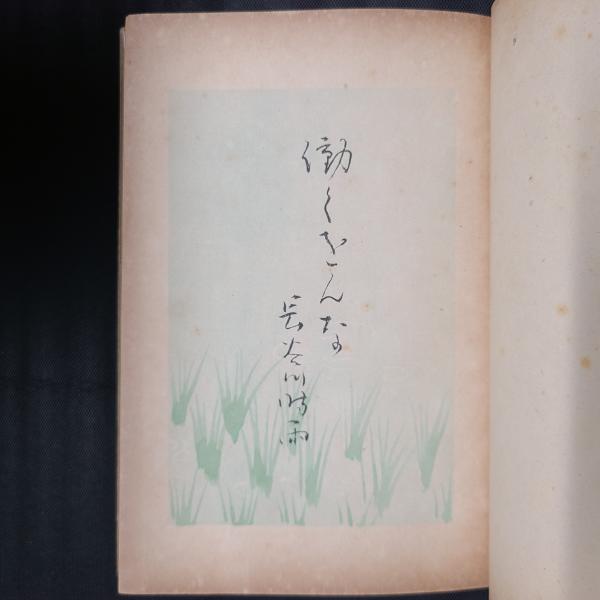 働くをんな
長谷川時雨